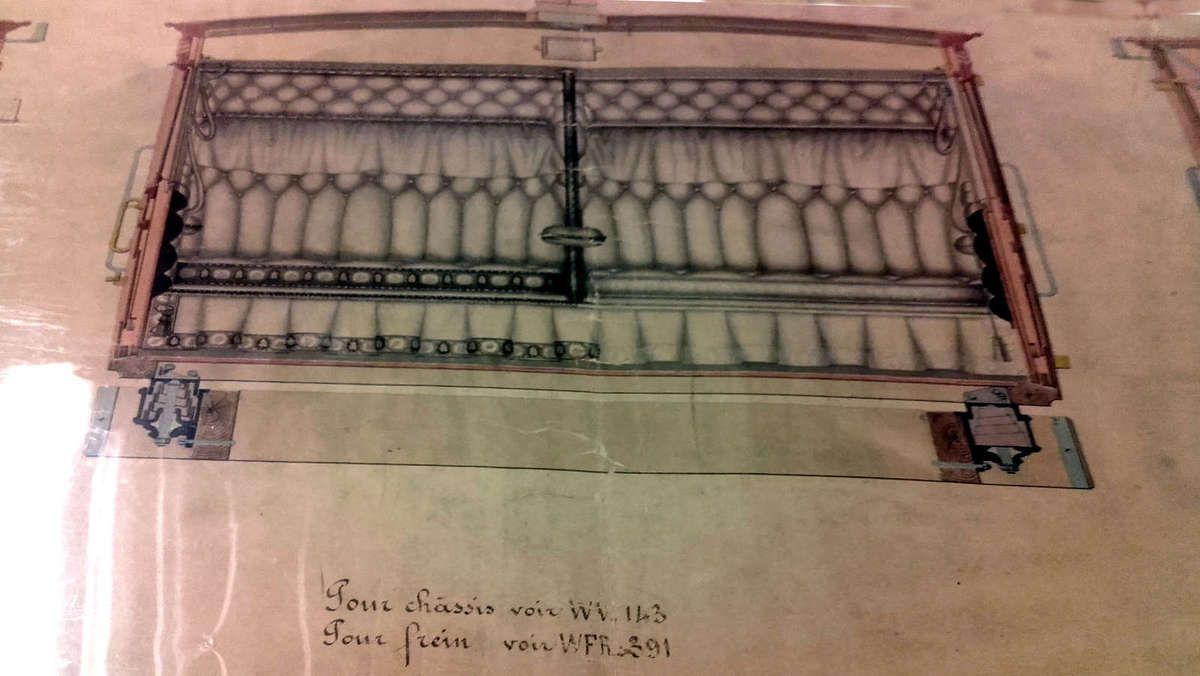 Pour châssis voir WV. 143
Pour frein voir WFR. 391